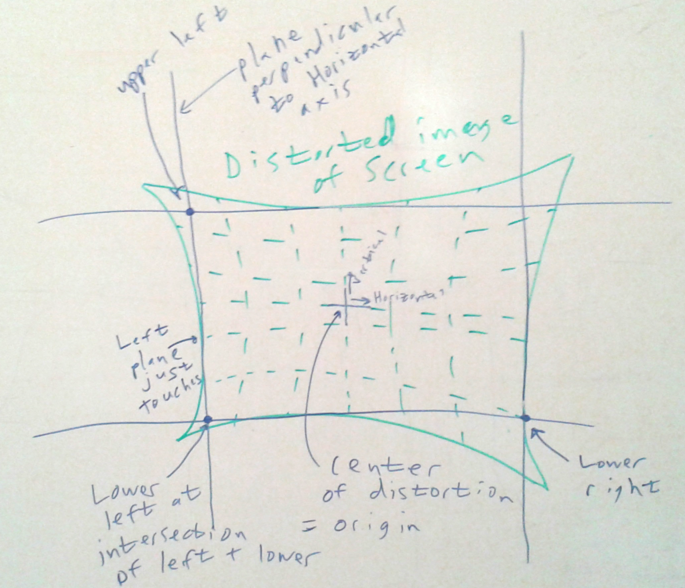 upper left
plane
perpendicular
to Horizontal
axis
Distorted image
of Screen
Vertical
Horizontal
Left
plane
just
touches
Lower
left at
intersection
of left + lower
Center
of distortion
= origin
Lower
right